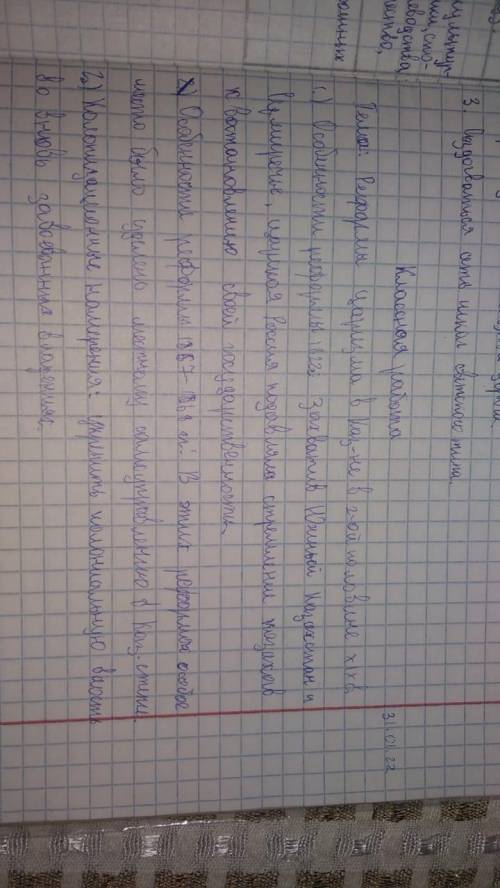 3. Создаваться сеть школ светского типа.
31.01.22
Классная работа
Тема: Реформы царизма в Каз-не в 2-ой половине XIX в.
1.) Особенности реформы 1822: Захватив Южный Казахстан и
царская Россия подавляла стремление казахов
к востановлению своей государственности.
Особенности реформы 1867-1868 гг: В этих реформах особое
место было уделено местному самоуправлению в Каз-стане.
2) Колонизационные намерения: укрепить колониальную власть
во вновь завоеванных владениях.